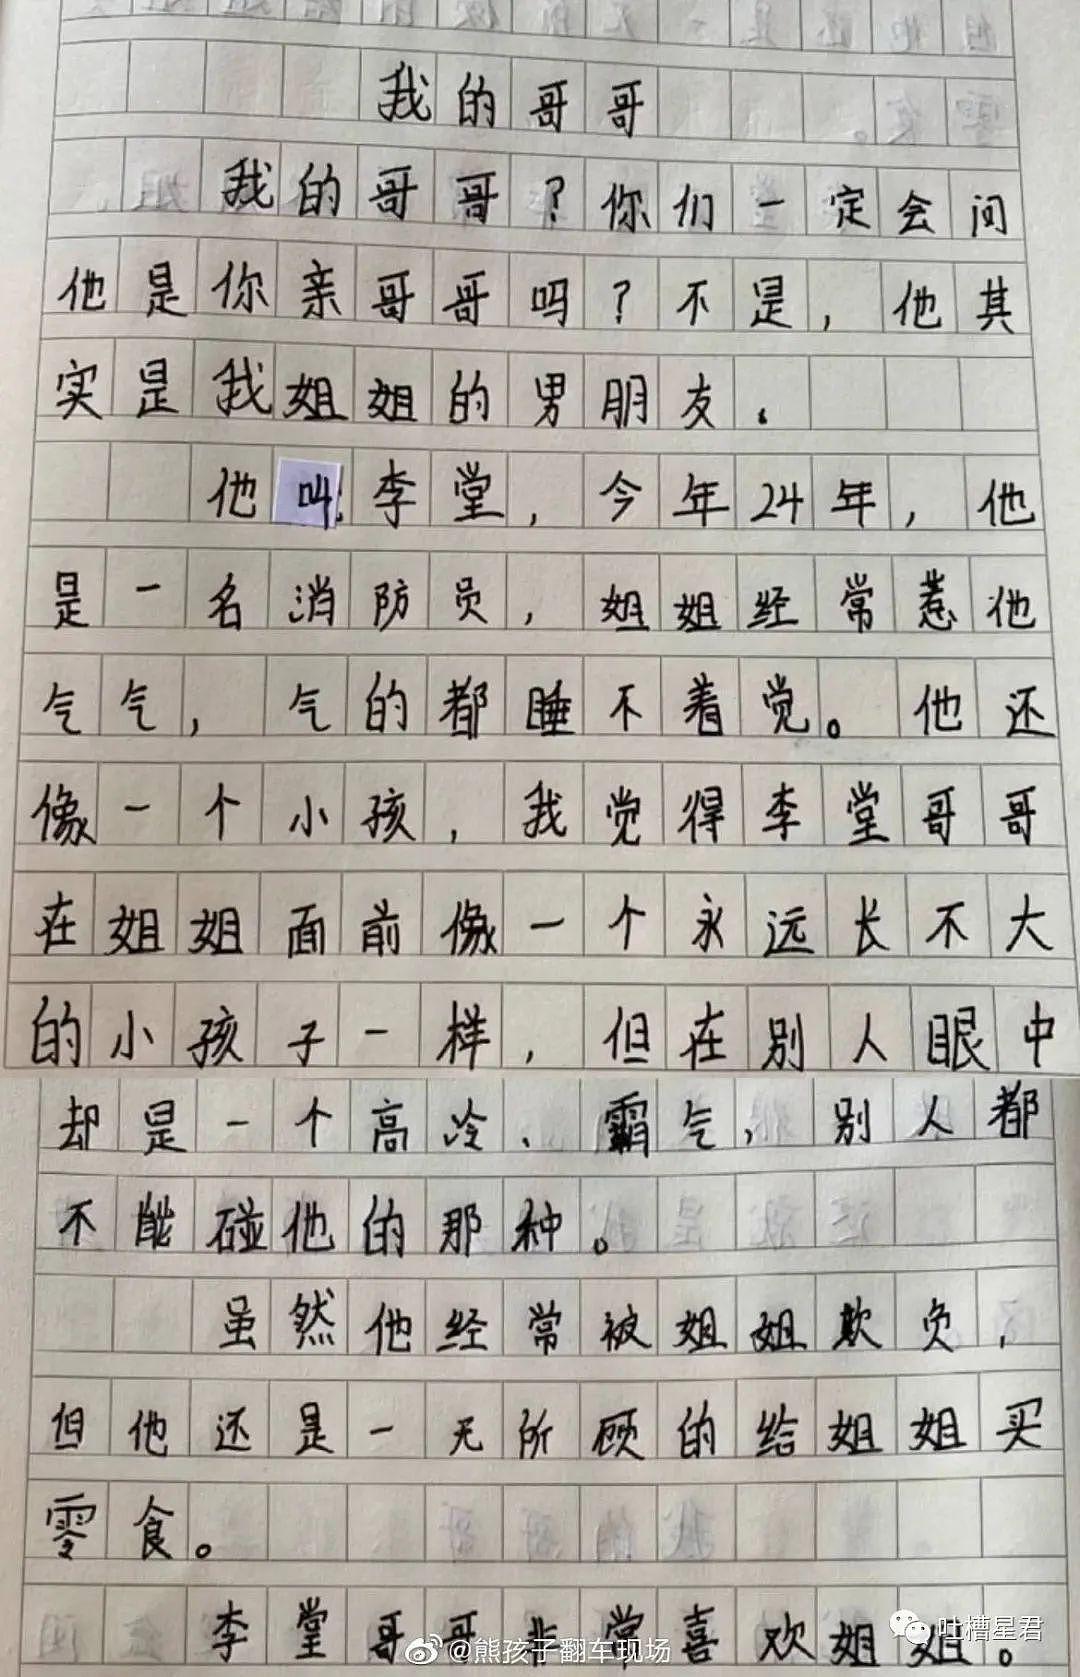 我的哥哥
我的哥哥？你们一定会问
他是你亲哥哥吗？不是，他其
实是我姐姐的男朋友。
他叫李堂，今年24年，他
是一名消防员，姐姐经常惹他
气气，气的都睡不着觉。他还
像一个小孩，我觉得李堂哥哥
在姐姐面前像一个永远长不大
的小孩子一样，但在别人眼中
却是一个高冷、霸气，别人都
不能碰他的那种。
虽然他经常被姐姐欺负，
但他还是一无所顾的给姐姐买
零食。
李堂哥哥非常喜欢姐姐。
@熊孩子翻车现场
吐槽星君